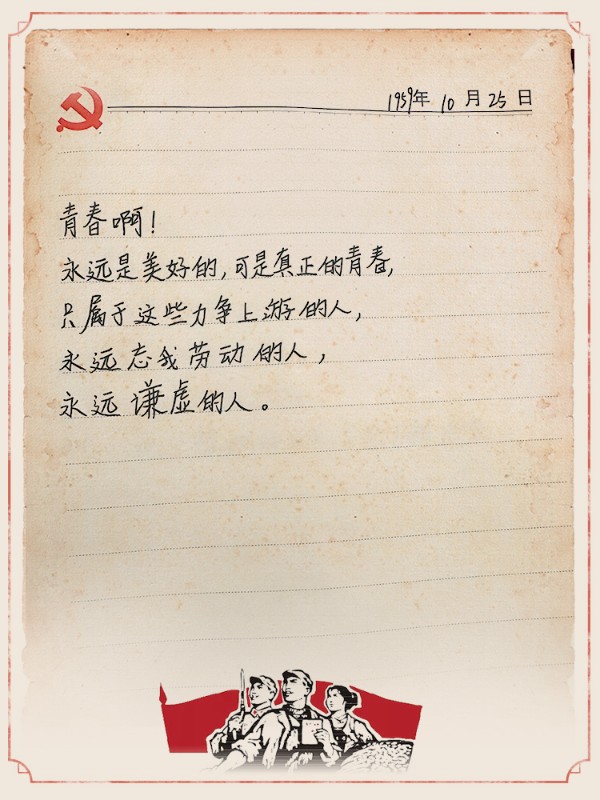 1959年 10月 25日
青春啊!
永远是美好的,可是真正的青春,
只属于这些力争上游的人,
永远忘我劳动的人,
永远谦虚的人。